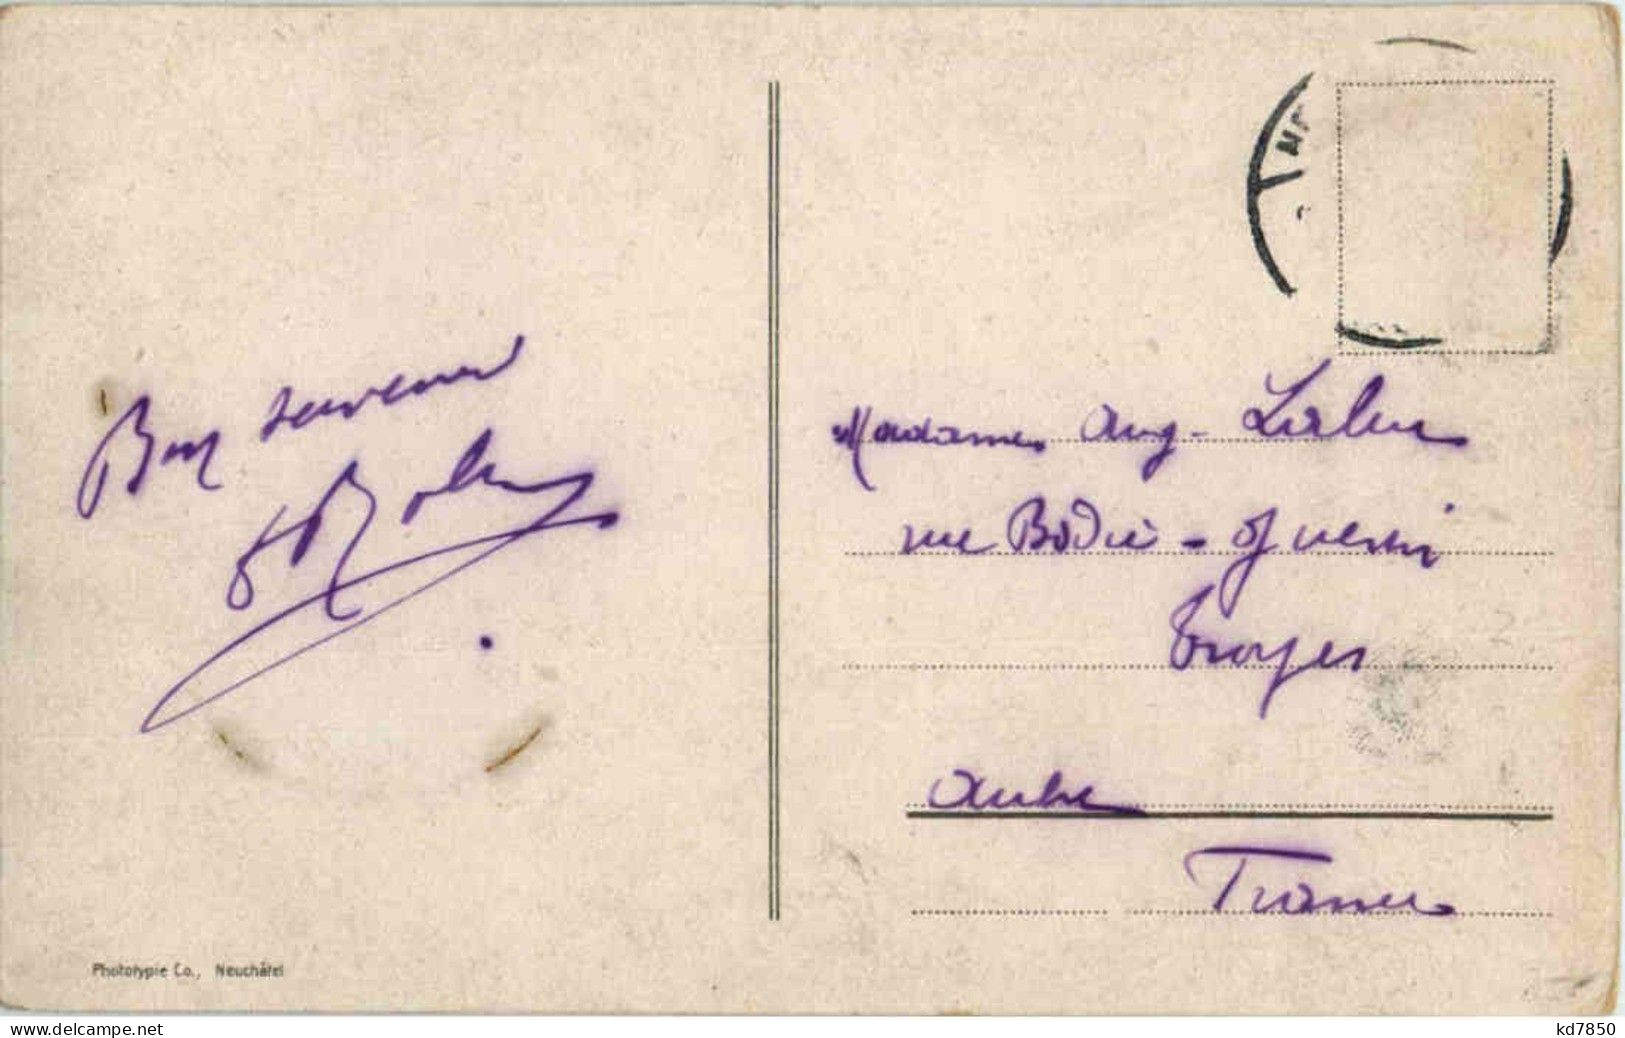 Bon souvenir
Madame Aug.
rue Bodié -
Troyes
Aube
France
Phototypie Co., Neuchâtel
www.delcampe.net
kd7850